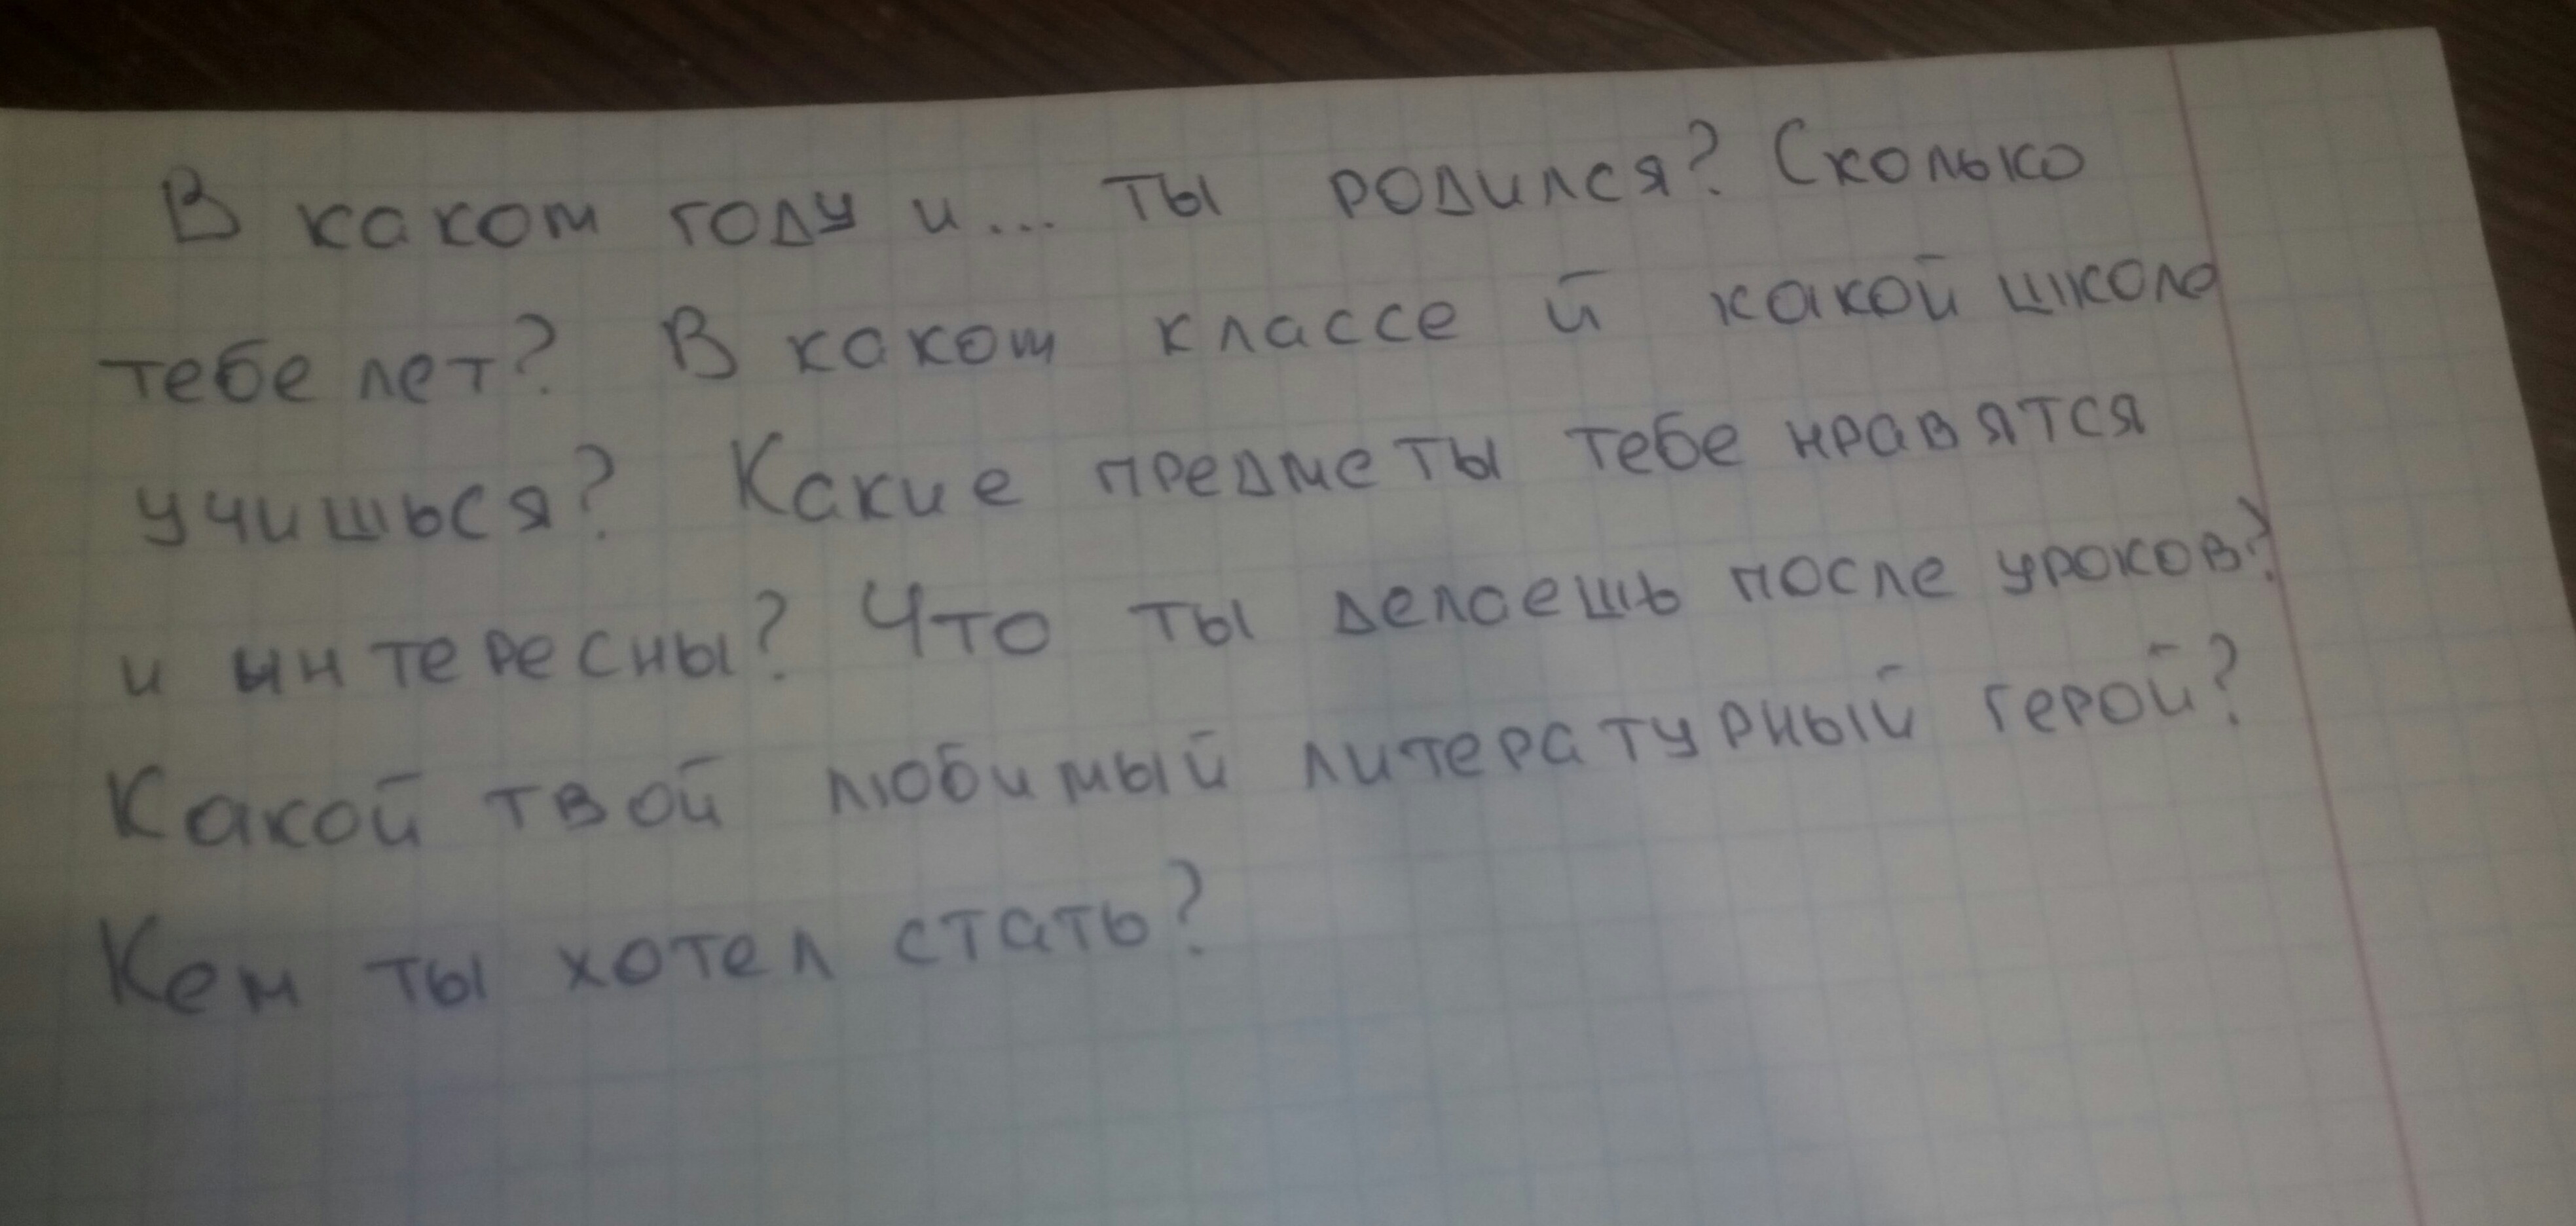 В каком году и... ты родился? Сколько
тебе лет? В каком классе й какой школа
учишься? Какие предметы тебе нравятся
и ынтересны? Что ты делаешь после уроков?
Какой твой любимый литературный герой?
Кем ты хотел стать?